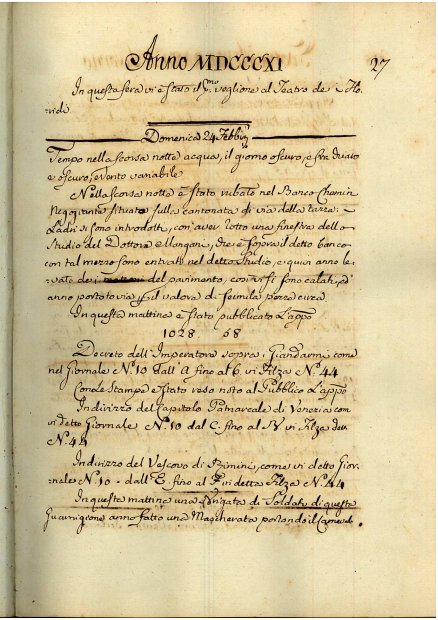 Anno MDCCCXI
27
In questa sera vi è stato il pmo veglione al Teatro de
ridi
Domenica 24 Febb
Tempo nella scorsa notte acqua, il giorno oscuro, e
e oscuro, e vento variabile
Nella scorsa notte è stato rubato nel Banco
Neggiante situato sulla cantonata di via della
Ladri si sono introdotti, con aver rotto una finestra dello
Studio del Dottore che è sopra il detto banco
con tal mezzo sono entrati nel detto Studio, e quivi anno le
vato dei mattoni del pavimento, così vi si sono calati, ed
anno portato via pil valore di seimila pezze circa
In questa mattina è stato pubblicato l'appo
1028. 68
Decreto dell'Imperatore sopra i Giandarmi come
nel Giornale N.º 10 dall' A fino al 6. vi Filza N.º 44
Con le Stampe è stato reso noto al Pubblico l'appo
Indirizzo del Capitolo Patriarcale di Venezia com
vi detto Giornale N.º 10 dal C. fino al vi Filza
N.º 44
Indirizzo del Vescovo di Rimini, come vi detto Gior-
nale N.º 10 - dall' E. fino al F. vi detta Filza N.º 44
In questa mattina una Brigata di Soldati di questa
Guarnigione anno fatto una Mascherata portando il Carneval